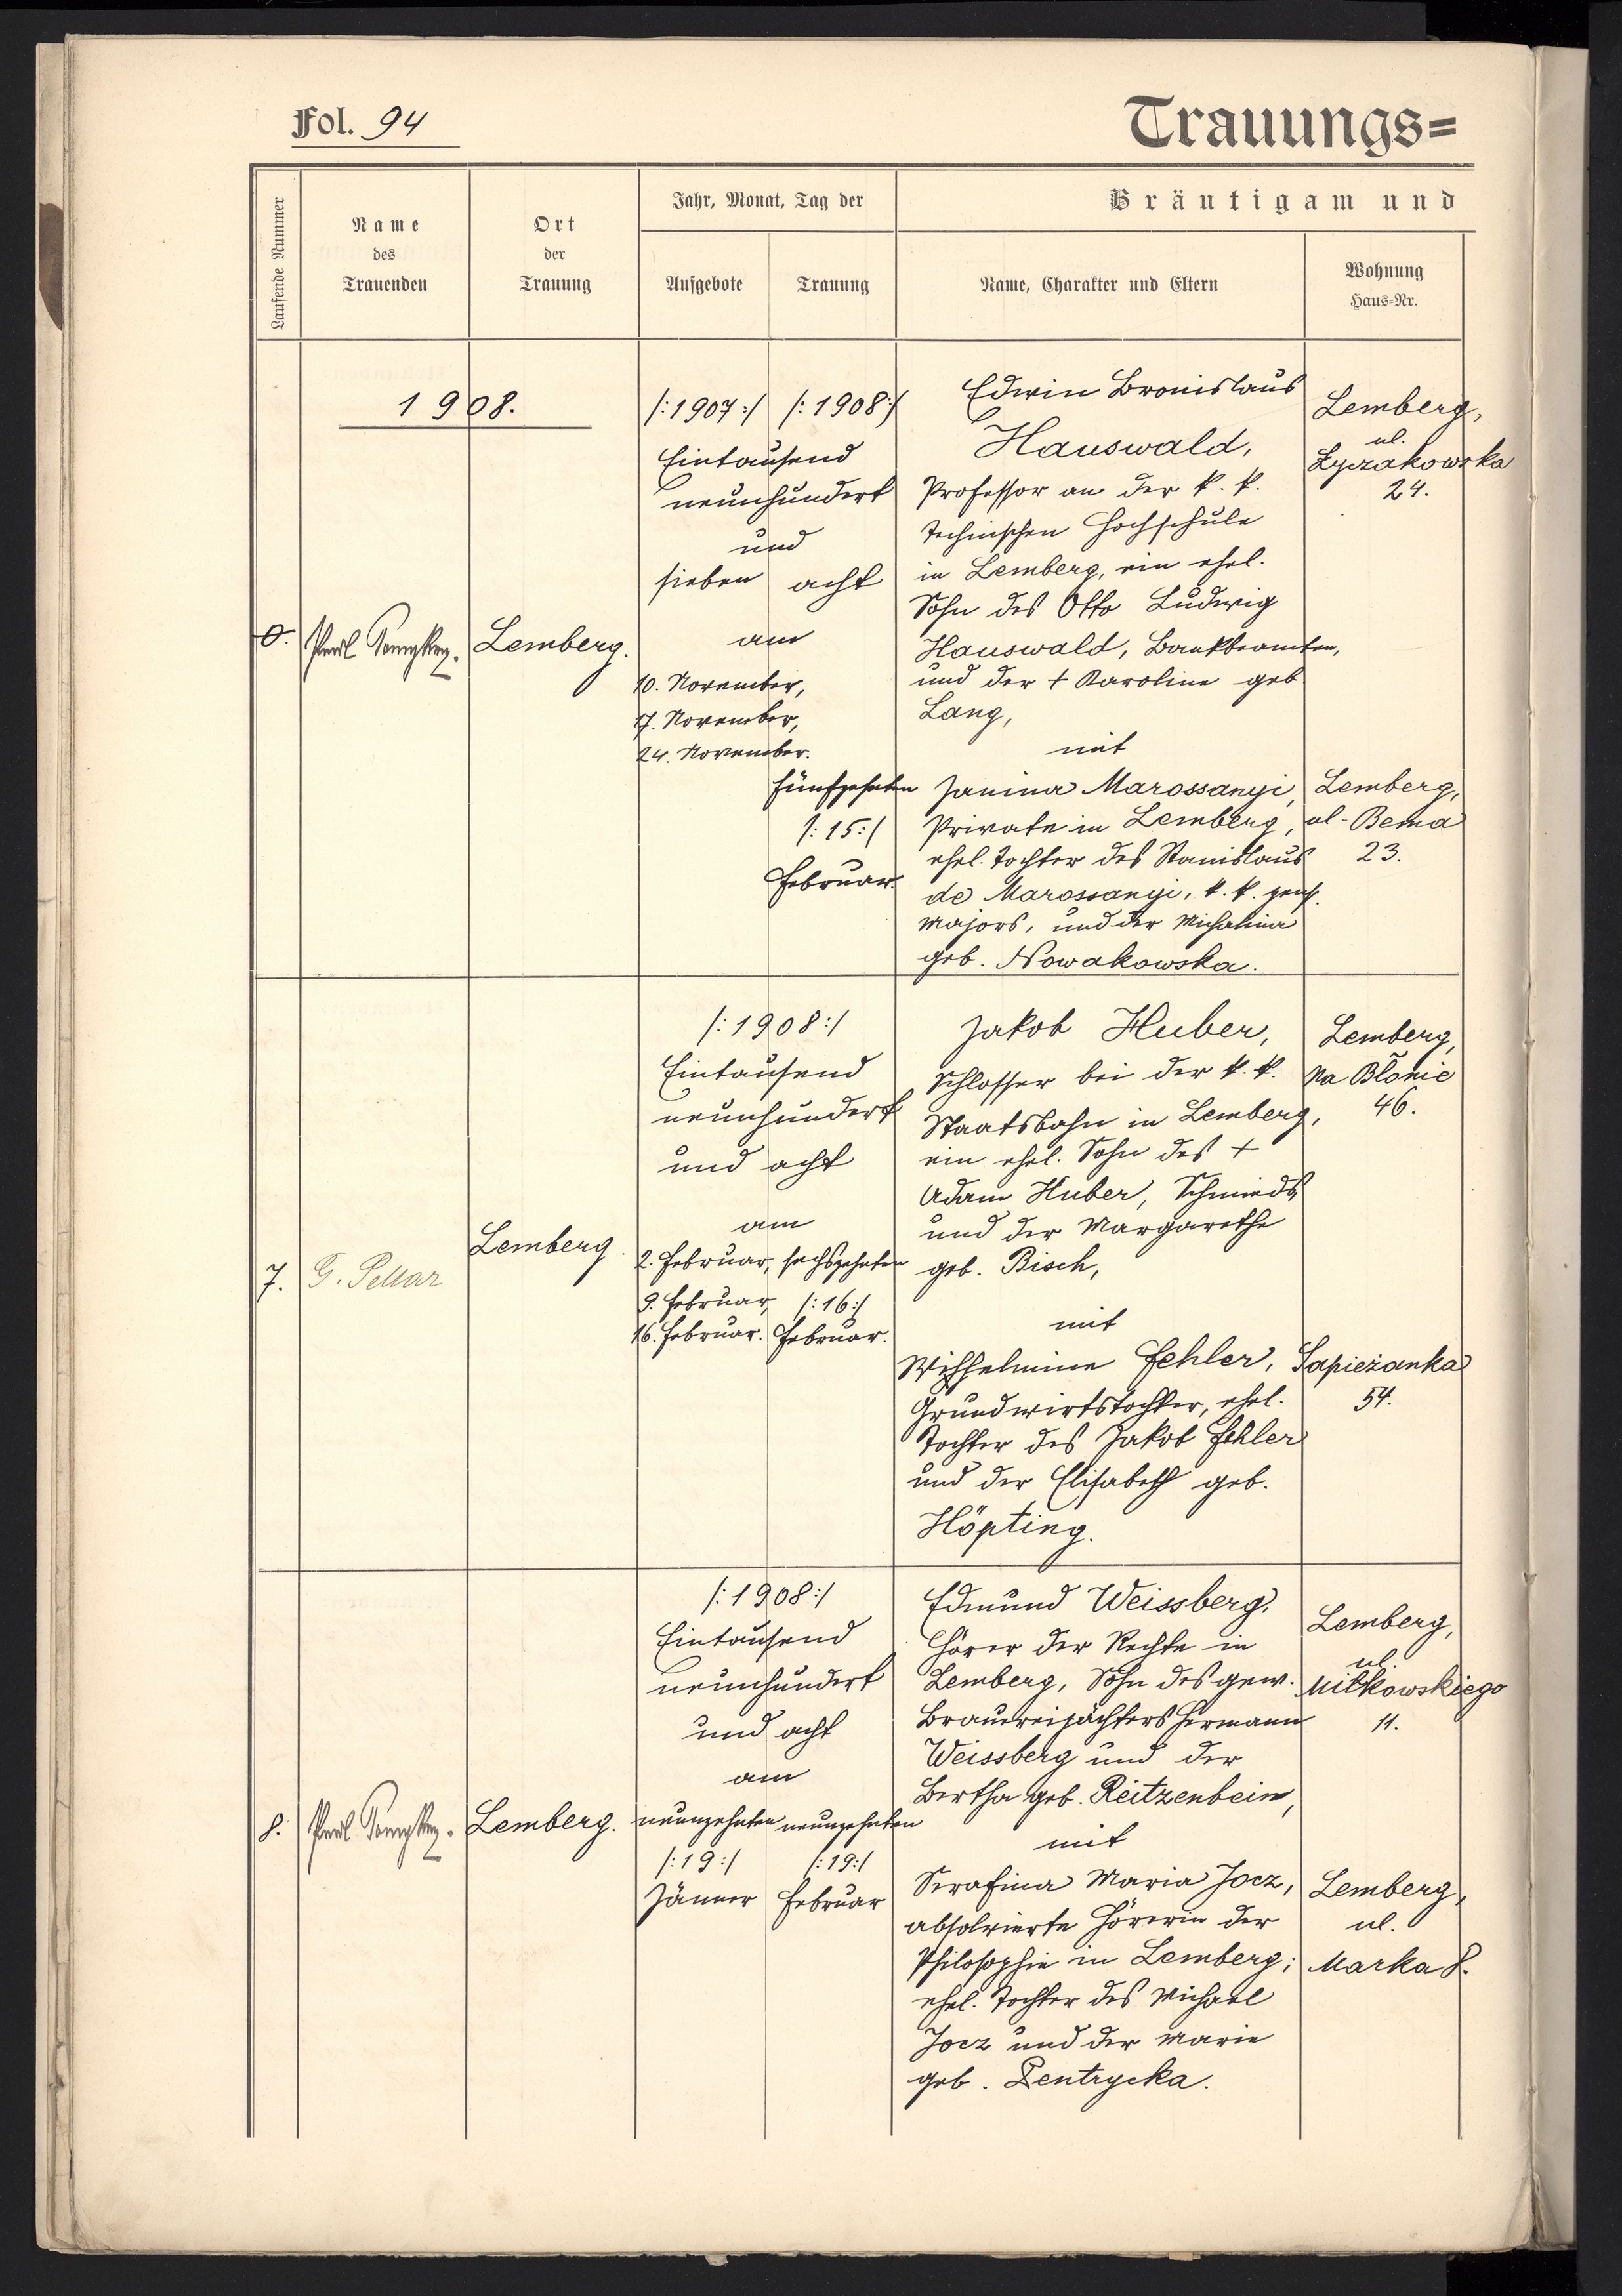 Fol. 94
Trauungs=
Laufende Nummer
Name
des
Trauenden
Ort
der
Trauung
Jahr, Monat, Tag der
Aufgebote
Trauung
Bräutigam und
Name, Charakter und Eltern
Wohnung
Haus-Nr.
1908.
/:1907:/ /:1908:/
Eintausend
neunhundert
und
sieben acht
am
10. November,
17. November,
24. November.
fünfzehnten
/:15:/
Februar.
Lemberg.
Edwin Bronislaus
Hauswald,
Professor an der k. k.
technischen Hochschule
in Lemberg, ein ehel.
Sohn des Otto Ludwig
Hauswald, Bankbeamten,
und der + Karoline geb
Lang,
mit
Janina Marossanyi,
Private in Lemberg,
ehel. Tochter des Stanislaus
de Marossanyi, k. k. pens.
Majors, und der Michalina
geb. Nowakowska.
Lemberg,
ul.
Łyczakowska
24.
Lemberg,
ul. Bema
23.
7.
G. Pellar
Lemberg.
/:1908:/
Eintausend
neunhundert
und acht
am
2. Februar, sechszehnten
9. Februar, /:16:/
16. Februar. Februar.
Jakob Huber,
Schlosser bei der k. k.
Staatsbahn in Lemberg,
ein ehel. Sohn des +
Adam Huber, Schmieds
und der Margarethe
geb. Bisch,
mit
Wilhelmine Fehler,
Grundwirtstochter, ehel.
Tochter des Jakob Fehler
und der Elisabeth geb.
Höpting.
Lemberg,
Na Błonie
46.
Sapieżanka
54.
8.
Lemberg.
/:1908:/
Eintausend
neunhundert
und acht
am
neunzehnten neunzehnten
/:19:/ /:19:/
Jänner Februar
Edmund Weissberg,
Hörer der Rechte in
Lemberg, Sohn des gew.
Brauereipächters Hermann
Weissberg und der
Bertha geb. Reitzenbein,
mit
Serafina Maria Jocz,
absolvierte Hörerin der
Philosophie in Lemberg;
ehel. Tochter des Michael
Jocz und der Marie
geb. Zentrycka.
Lemberg,
ul.
Miłkowskiego
11.
Lemberg,
ul.
Marka 8.